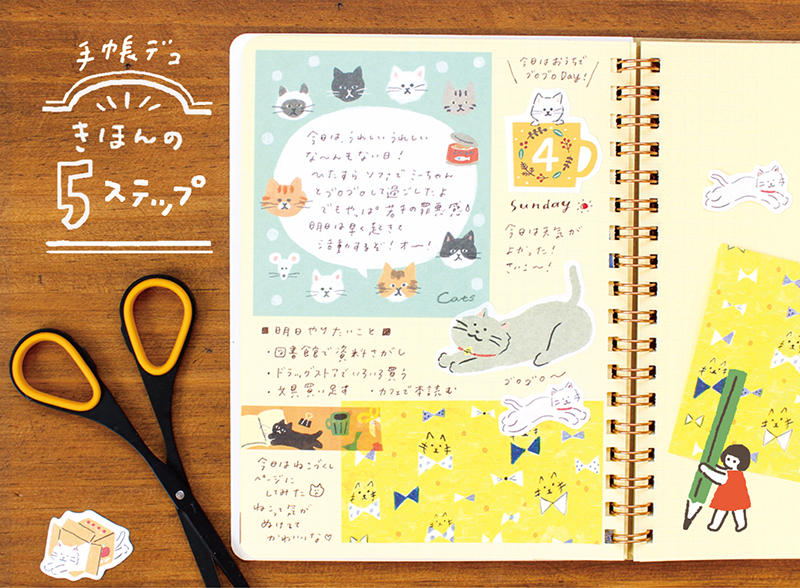 手帳デコ
きほんの
5ステップ
今日は、うれしい うれしい
な〜んもない日！
ひたすら ソファで ミーちゃん
とゴロゴロして過ごしたよ
でもやっぱ 若干の罪悪感
明日は早く起きて
活動するぞ！オー！
Cats
今日はおうちで
ゴロゴロDay！
4
Sunday
今日は天気が
よかった！
さいこ〜！
明日やりたいこと
・図書館で資料さがし
・ドラッグストアでいろいろ買う
・文具買い足す ・カフェで本読む
ゴロゴロ〜
今日はねこづくし
ページに
してみた
ねこって気が
ぬけてて
かわいいな♡